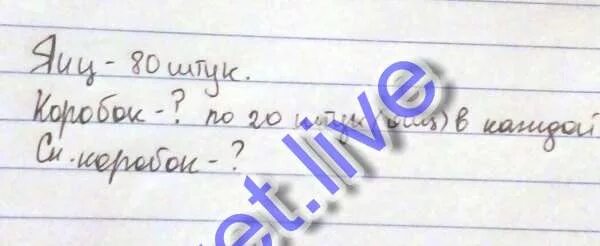 Яиц - 80 штук.
Коробок - ? по 20 штук (яиц) в каждой
Ск. коробок - ?
et.live